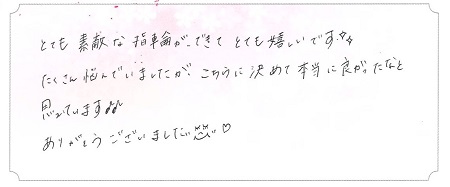 とても 素敵な 指輪が、できて とても 嬉しいです✨
たくさん 悩んでいましたが、こちらに 決めて 本当に 良かったなと
思っています♪♪
ありがとうございました!!♡